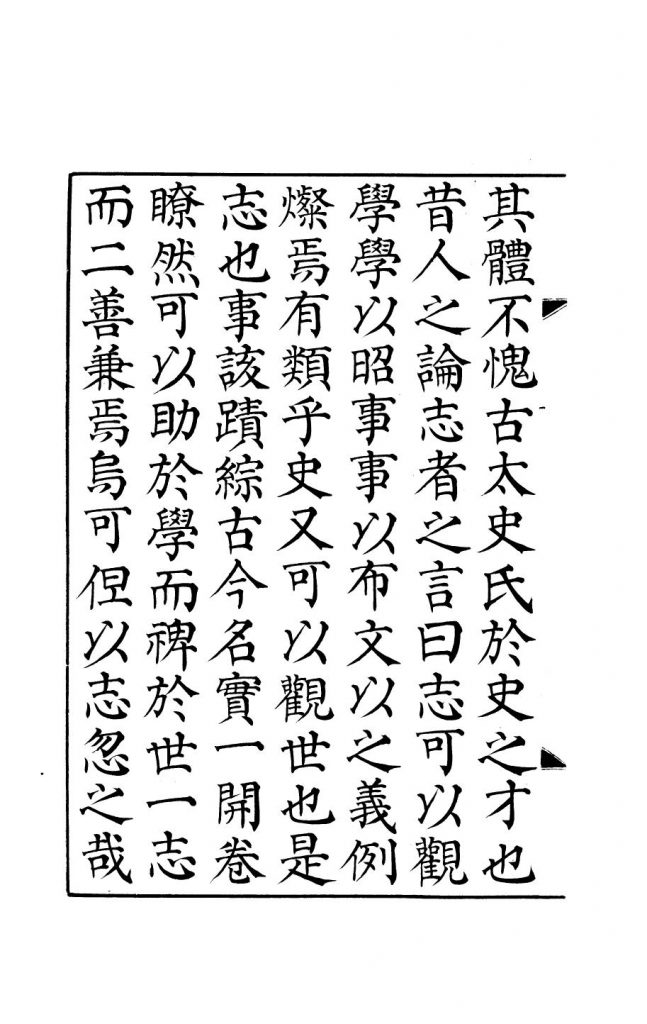 其體不愧古太史氏於史之才也
昔人之論志者之言曰志可以觀
學學以昭事事以布文以之義例
燦焉有類乎史又可以觀世也是
志也事該蹟綜古今名實一開卷
瞭然可以助於學而裨於世一志
而二善兼焉烏可但以志忽之哉